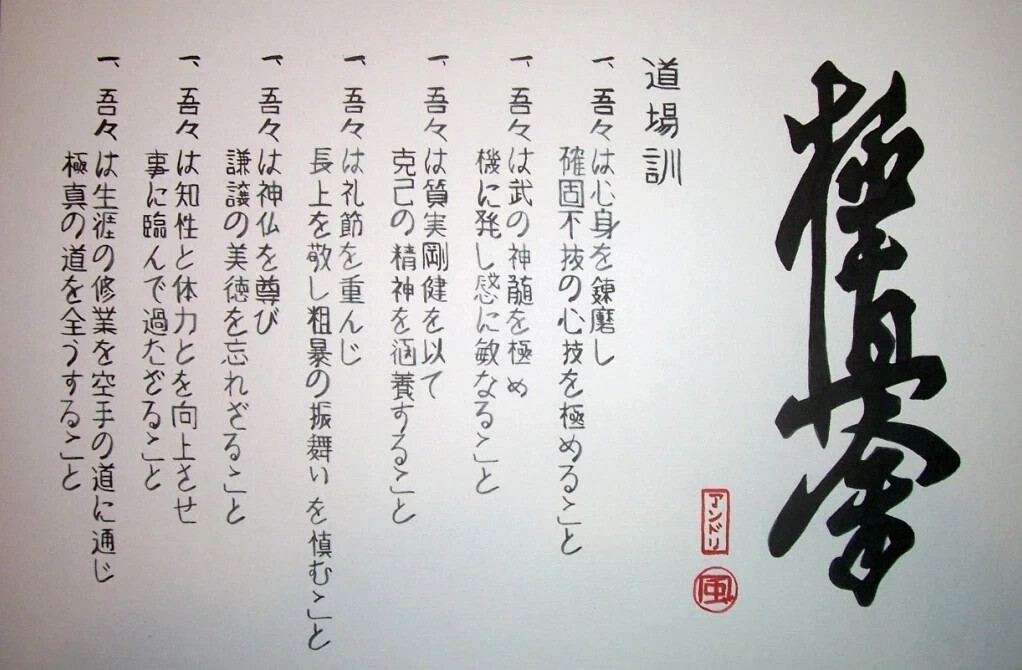 極真会
道場訓
一、吾々は心身を錬磨し
確固不技の心技を極めること
一、吾々は武の神髄を極め
機に発し感に敏なること
一、吾々は質実剛健を以て
克己の精神を涵養すること
一、吾々は礼節を重んじ
長上を敬し粗暴の振舞いを慎むこと
一、吾々は神仏を尊び
謙譲の美徳を忘れざること
一、吾々は知性と体力とを向上させ
事に臨んで過たざること
一、吾々は生涯の修業を空手の道に通じ
極真の道を全うすること
アンドリ
風